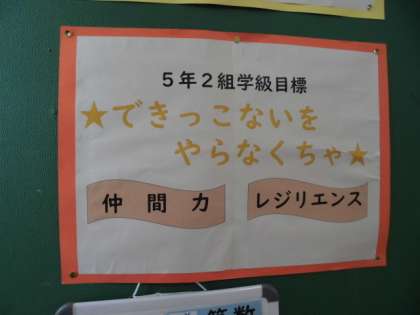 5年2組学級目標
★できっこないを
やらなくちゃ★
仲間力
レジリエンス
算数